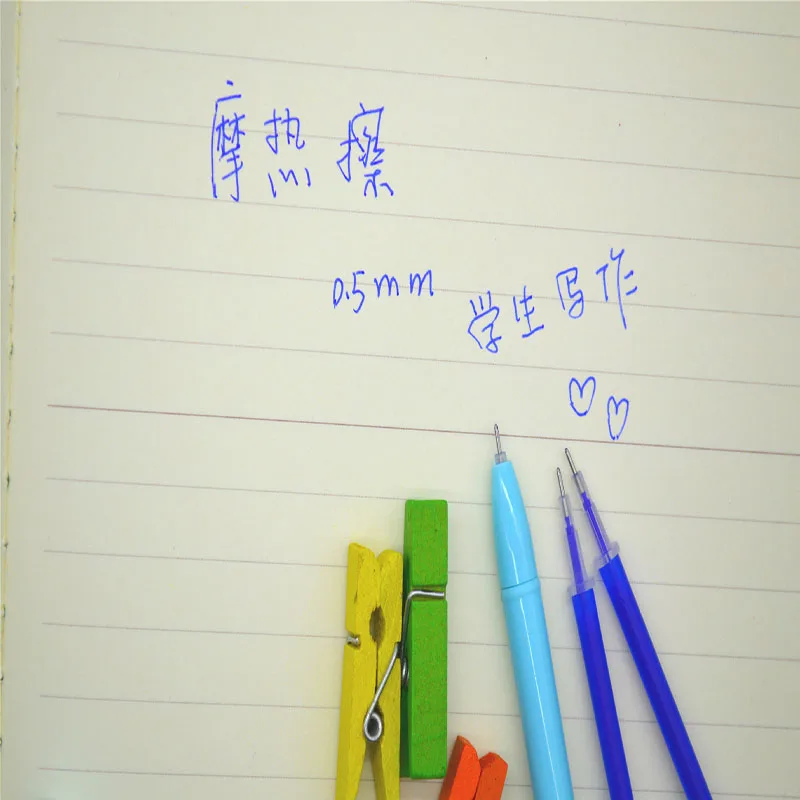 摩热擦
0.5mm 学生写作